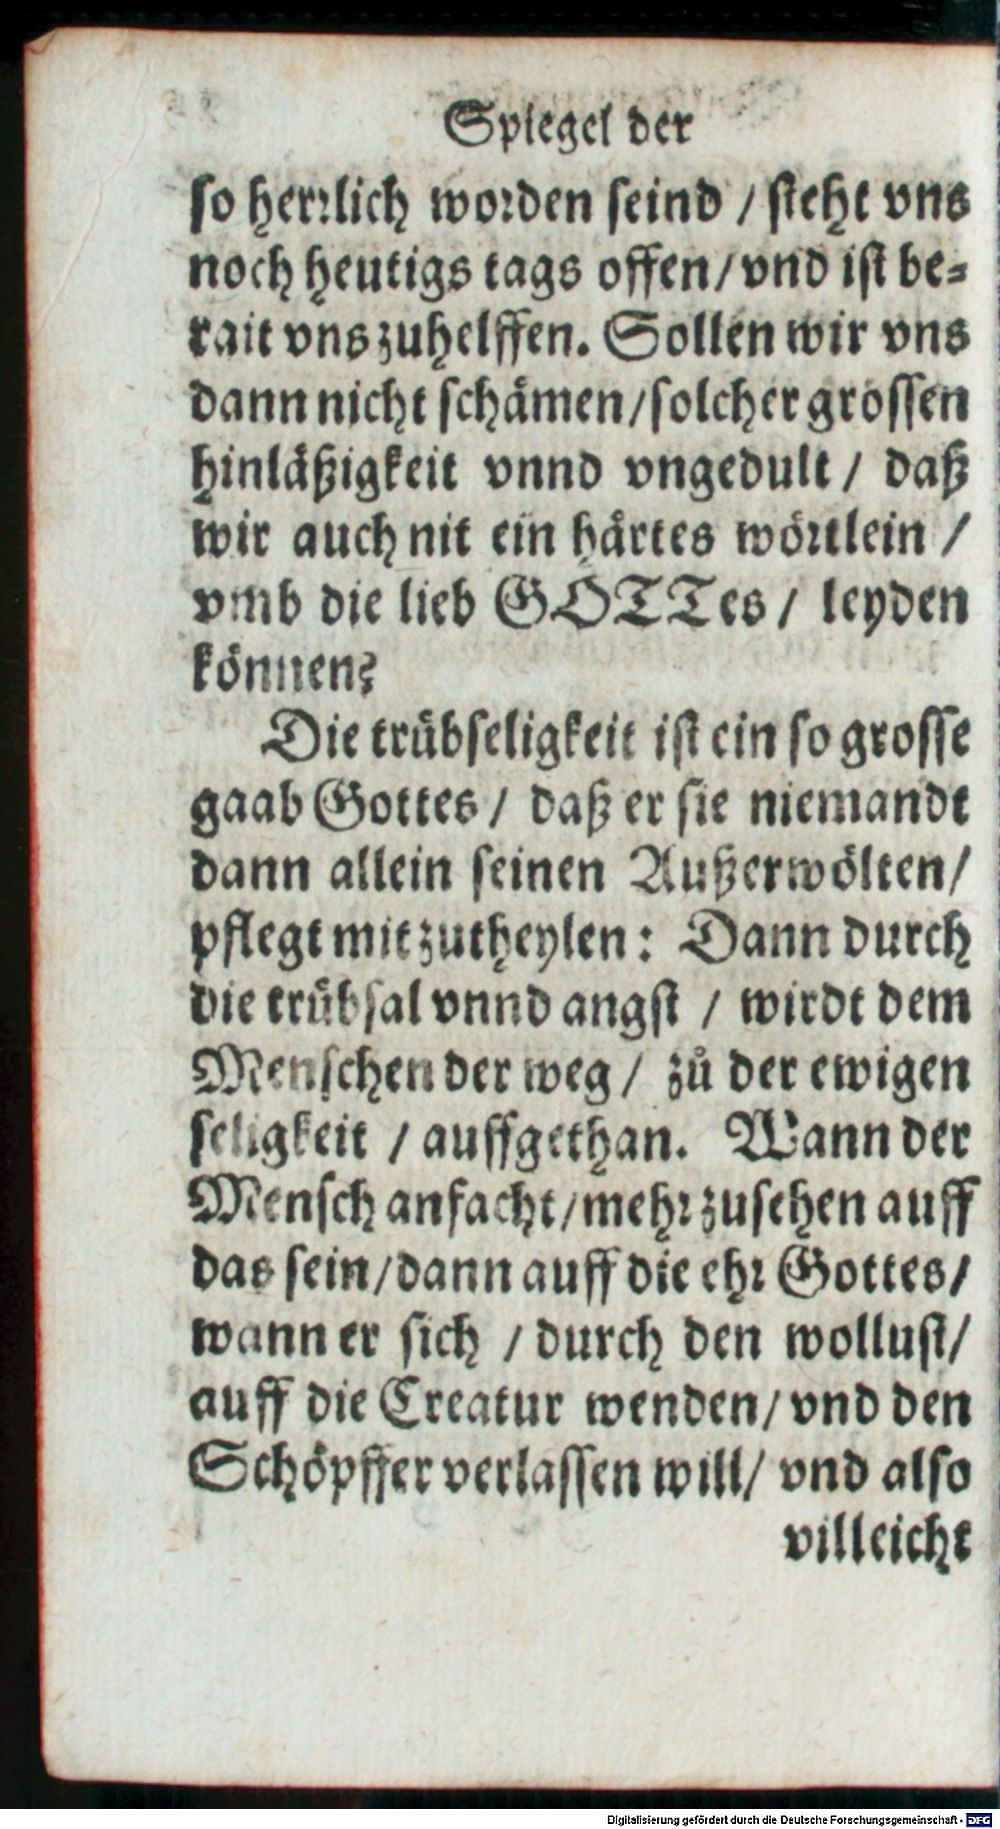 Spiegel der
so herꝛlich woꝛden seind / steht vns
noch heutigs tags offen / vnd ist be⸗
rait vns zuhelffen. Sollen wir vns
dann nicht schämen / solcher grossen
hinläßigkeit vnnd vngedult / daß
wir auch nit ein härtes wöꝛtlein /
vmb die lieb GOTTes / leyden
können?
Die trübseligkeit ist ein so grosse
gaab Gottes / daß er sie niemandt
dann allein seinen Außerwölten /
pflegt mitzutheylen: Dann durch
die trübsal vnnd angst / wirdt dem
Menschen der weg / zů der ewigen
seligkeit / auffgethan. Wann der
Mensch anfacht / mehꝛ zusehen auff
das sein / dann auff die ehꝛ Gottes /
wann er sich / durch den wollust /
auff die Creatur wenden / vnd den
Schöpffer verlassen will / vnd also
villeicht
Digitalisierung gefördert durch die Deutsche Forschungsgemeinschaft - DFG